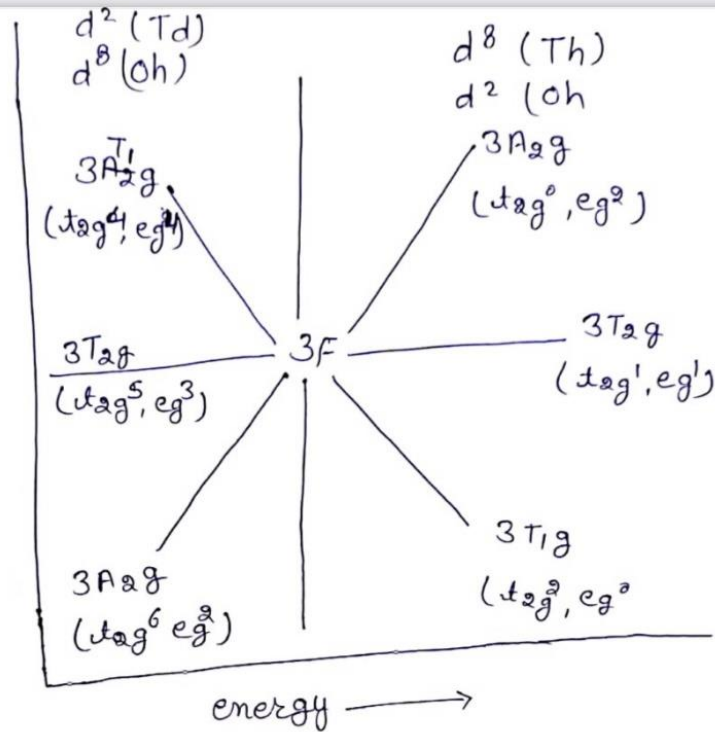 d² (Td)
d⁸ (Oh)
d⁸ (Th)
d² (Oh
3T₁g
(t₂g⁴, eg⁴)
3A₂g
(t₂g⁰, eg²)
3T₂g
(t₂g⁵, eg³)
3F
3T₂g
(t₂g¹, eg¹)
3A₂g
(t₂g⁶ eg²)
3T₁g
(t₂g², eg⁰
energy